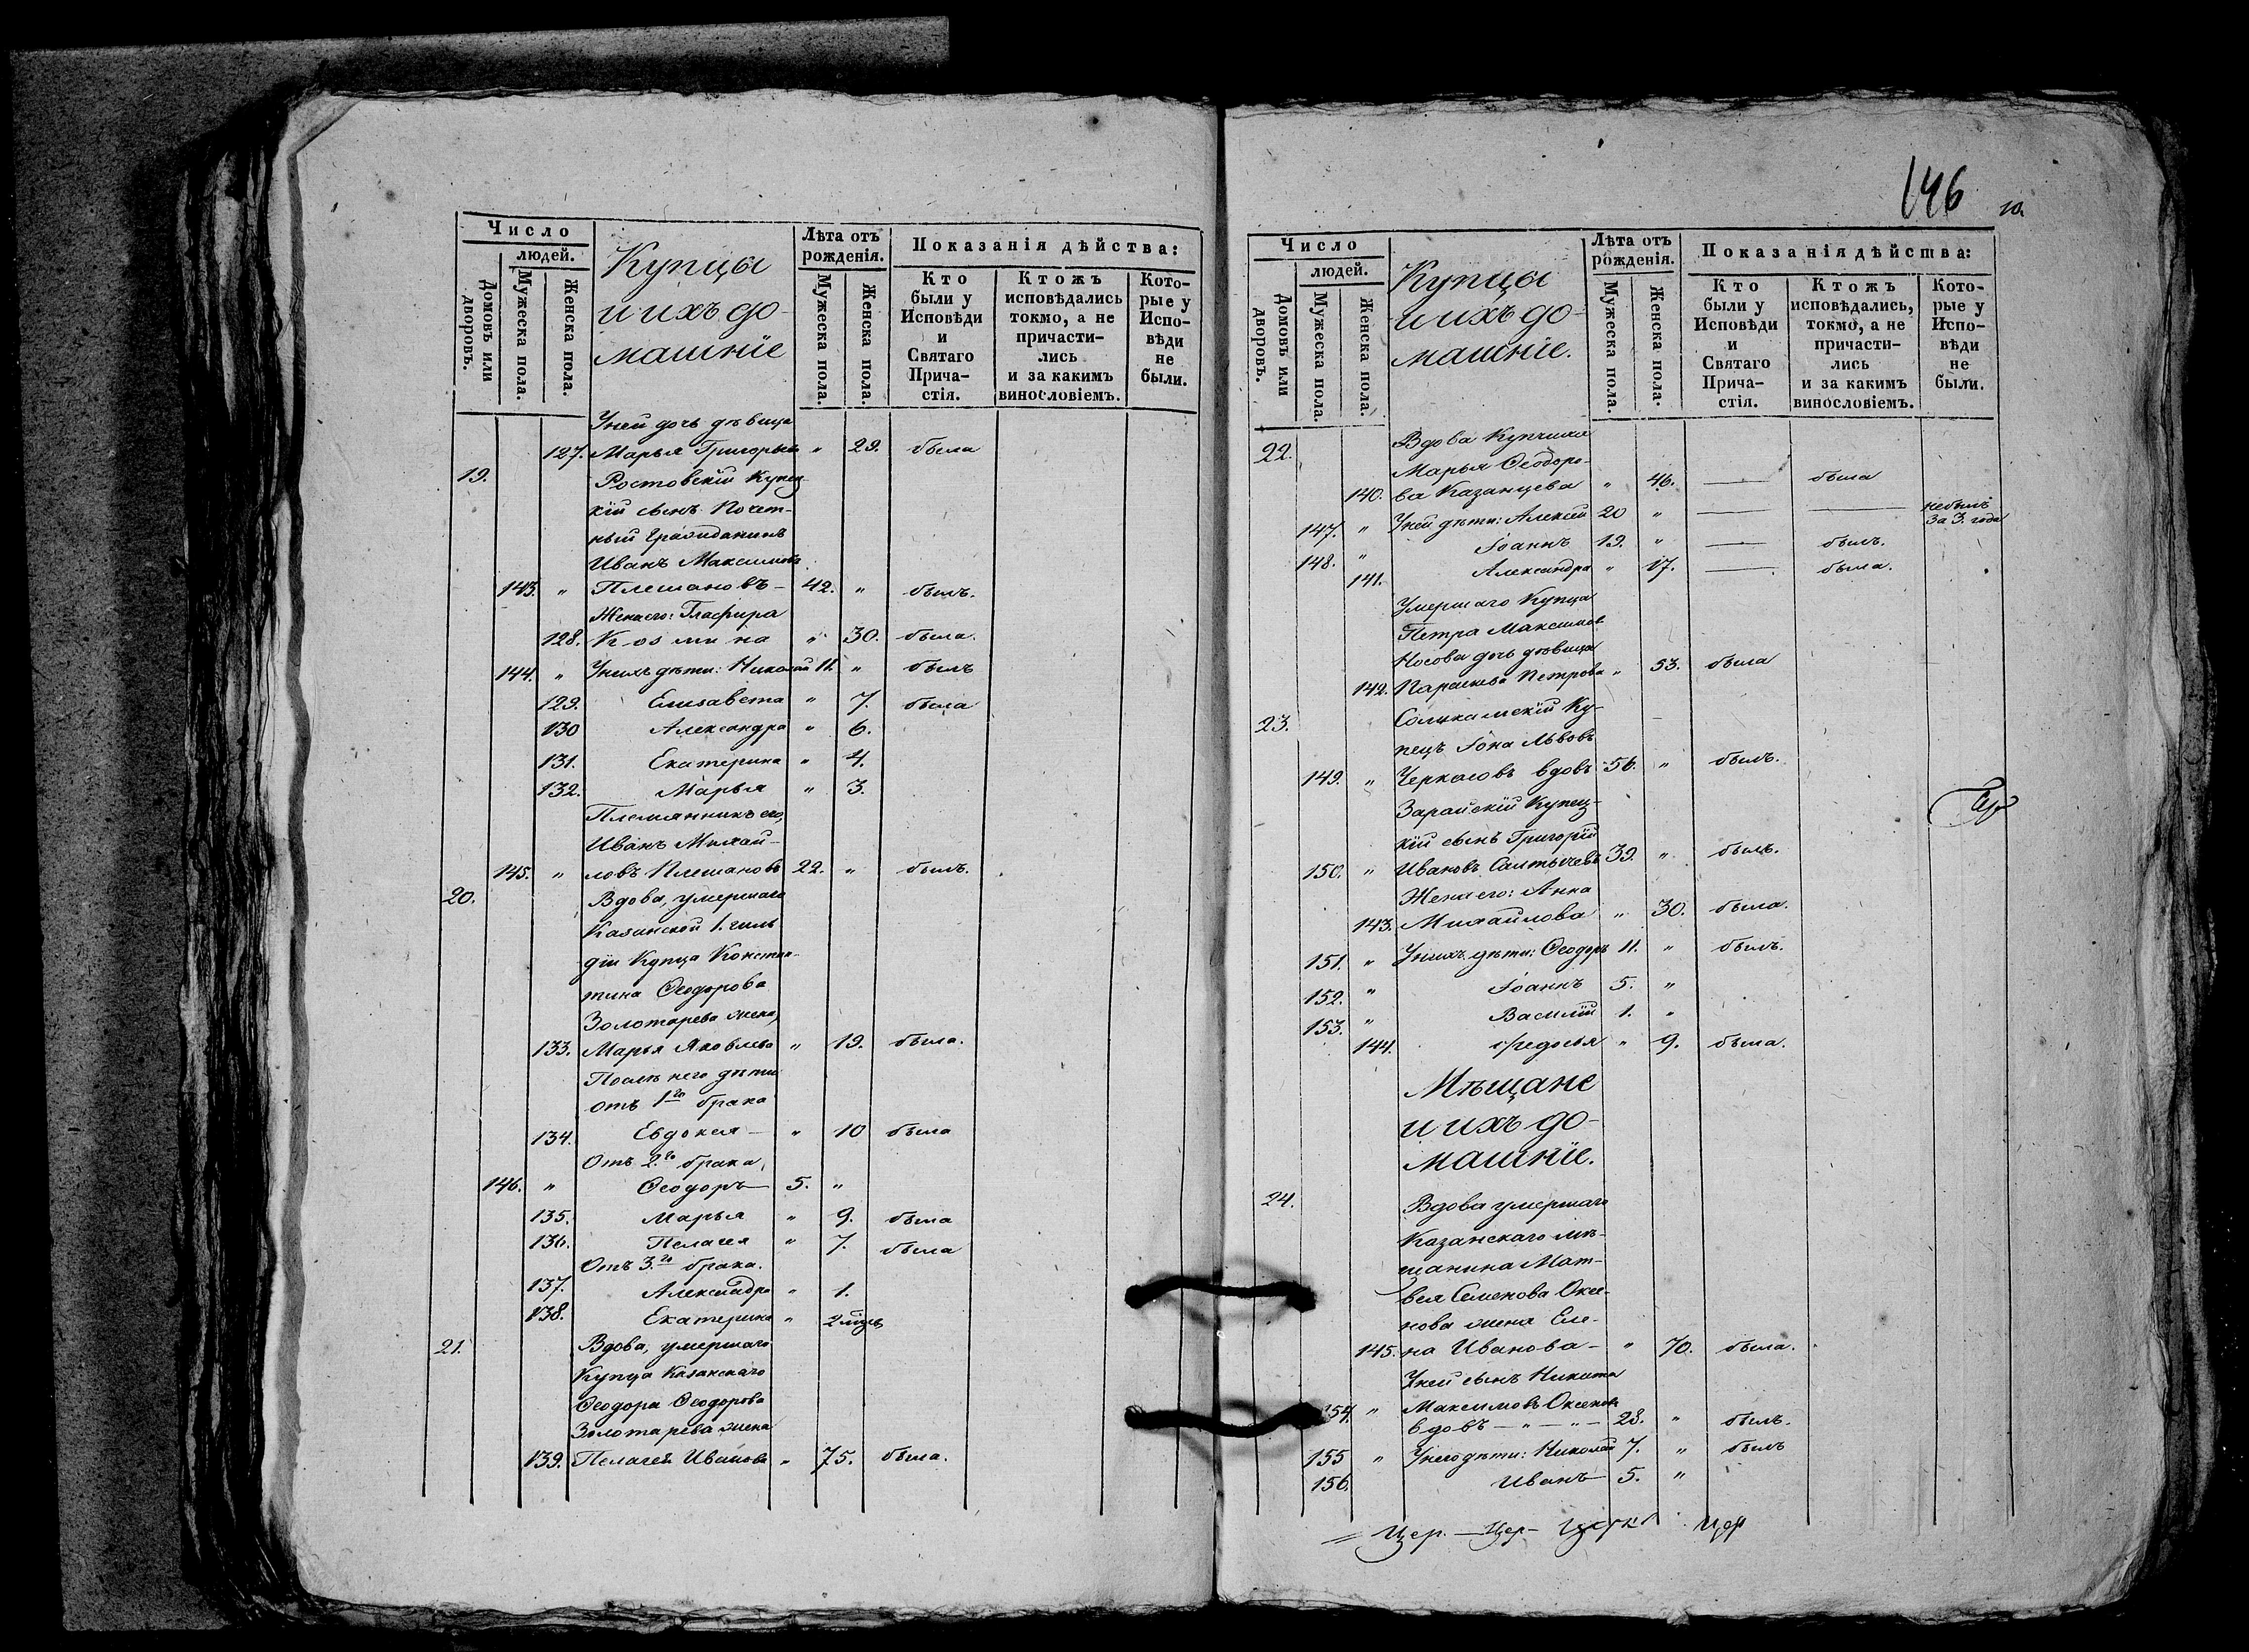 Число
людей.
Домовъ или дворовъ.
Мужеска пола.
Женска пола.
Купцы
и ихъ до-
машніе
Лѣта отъ
рожденія.
Мужеска пола.
Женска пола.
Показанія дѣйства:
Кто
были у
Исповѣди
и
Святаго
Прича-
стія.
Ктожъ
исповѣдались
токмо, а не
причасти-
лись
и за какимъ
винословіемъ.
Кото-
рые у
Испо-
вѣди
не
были.
У ней дочь дѣвица
127. Марья Григорьева " 29. была
19. Ростовскій Купец-
кій сынъ Почет-
ный Гражданинъ
Иванъ Максимовъ
143. " Плешановъ - 42. " былъ.
Жена его: Глафира
128. Козмина " 30. была.
144. " У нихъ дѣти: Николай 11. " былъ
129. Елисавета " 7. была
130 Александра " 6.
131. Екатерина " 4.
132. Марья " 3.
Племянникъ его,
Иванъ Михай-
145. " ловъ Плешановъ 22. " былъ.
20. Вдова, умершаго
Казанской 1. гиль
діи Купца Констан-
тина Ѳеодорова
Золотарева жена,
133. Марья Яковлева " 19. была.
Послѣ него дѣти
отъ 1го брака
134. Евдокея - " 10 была
Отъ 2.го брака,
146. " Ѳеодоръ - 5. "
135. Марья " 9. была
136. Пелагея " 7. была
Отъ 3.го брака.
137. Александра " 1.
138. Екатерина " 2 мѣсц
21. Вдова, умершаго
Купца Казанскаго
Ѳеодора Ѳеодорова
Золотарева жена
139. Пелагея Иванова " 75. была.
146
10.
Число
людей.
Домовъ или дворовъ.
Мужеска пола.
Женска пола.
Купцы
и ихъ до-
машніе.
Лѣта отъ
рожденія.
Мужеска пола.
Женска пола.
Показанія дѣйства:
Кто
были у
Исповѣди
и
Святаго
Прича-
стія.
Ктожъ
исповѣдались,
токмо, а не
причасти-
лись
и за какимъ
винословіемъ.
Кото-
рые у
Испо-
вѣди
не
были.
22. Вдова Купчиха
Марья Ѳеодоро-
140. ва Казанцева " 46. — была
147. " У ней дѣти: Алексѣй 20 " — — небылъ за 3. года
148. " Іоаннъ 19. " — былъ.
141. Александра " 17. — была.
Умершаго Купца
Петра Максимов
Носова дочь дѣвица
142. Параскева Петрова " 53. была
23. Соликамскій Ку-
пецъ Іона Львовъ
149. " Черкасовъ вдовъ 56. " былъ.
Зарайскій Купец-
кій сынъ Григорій
150. " Ивановъ Салтычевъ 39. " былъ.
Жена его: Анна
143. Михайлова " 30. была.
151. " У нихъ дѣти: Ѳеодоръ 11. " былъ.
152. " Іоаннъ 5. "
153. " Василій 1. "
144. Ѳедосья " 9. была.
Мѣщане
и ихъ до-
машніе.
24. Вдова умершаго
Казанскаго мѣ-
щанина Мат-
вея Семенова Оксе-
нова жена Еле-
145. на Иванова - " 70. была.
У ней сынъ Никита
154. " Максимовъ Оксенов
вдовъ - " - " - 28. " былъ.
155 " У него дѣти: Николай 7. " былъ
156. Иванъ - 5. "
Цер. — Цер - Церк Цер